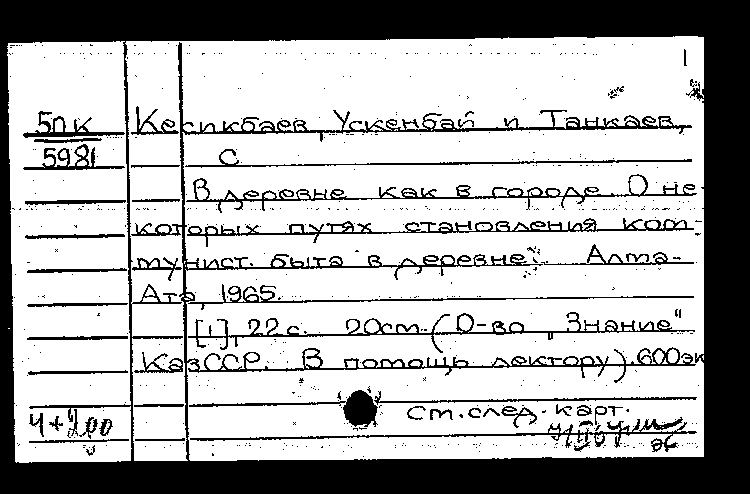 1
5пк Кесикбаев, Ускенбай и Танкаев,
5981 С
В деревне как в городе. О не-
которых путях становления ком-
мунист. быта в деревне. Алма-
Ата, 1965.
[1], 22 с. 20см. (О-во "Знание"
КазССР. В помощь лектору). 600эк
См. след. карт.
4+200